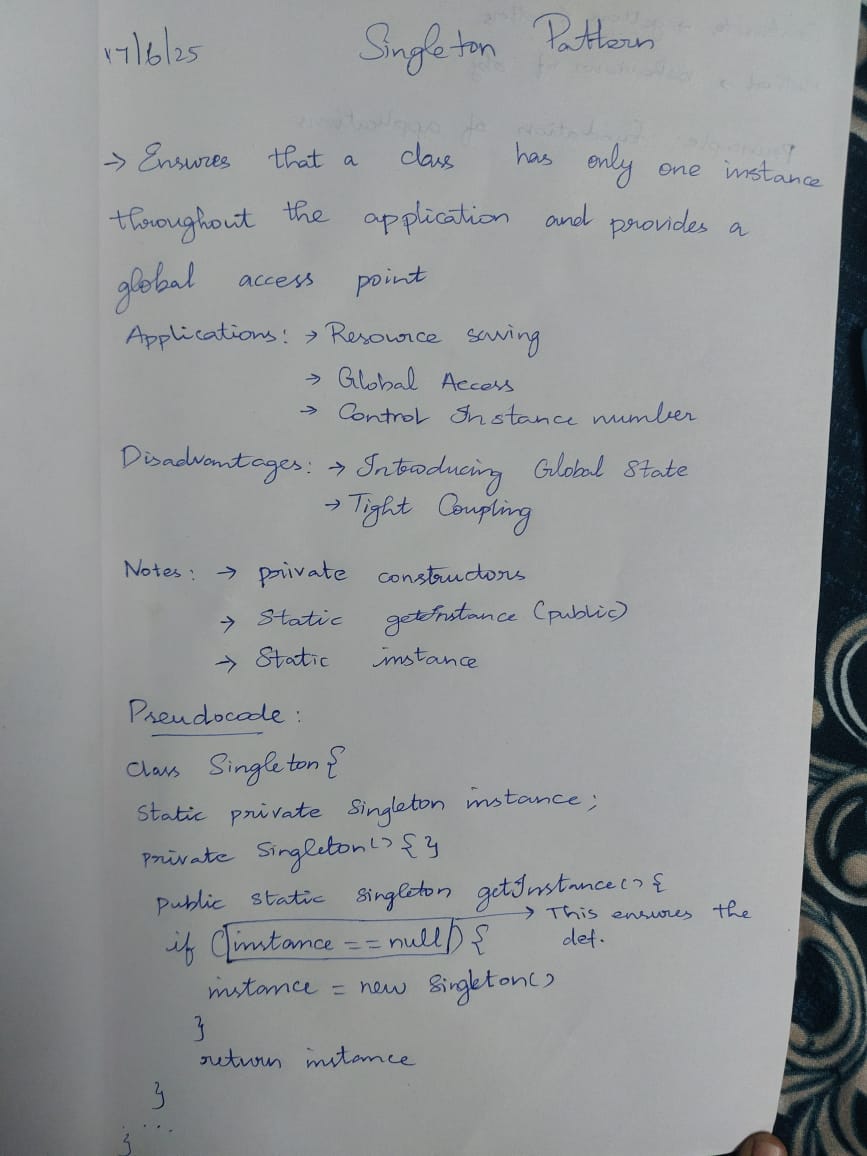 17/6/25 Singleton Pattern
→ Ensures that a class has only one instance
throughout the application and provides a
global access point
Applications: → Resource saving
→ Global Access
→ Control Instance number
Disadvantages: → Introducing Global State
→ Tight Coupling
Notes: → private constructors
→ Static getInstance (public)
→ Static instance
Pseudocode:
Class Singleton {
Static private Singleton instance;
private Singleton() { }
public static Singleton getInstance() {
if (instance == null) { → This ensures the
def.
instance = new Singleton()
}
return instance
}
...
}